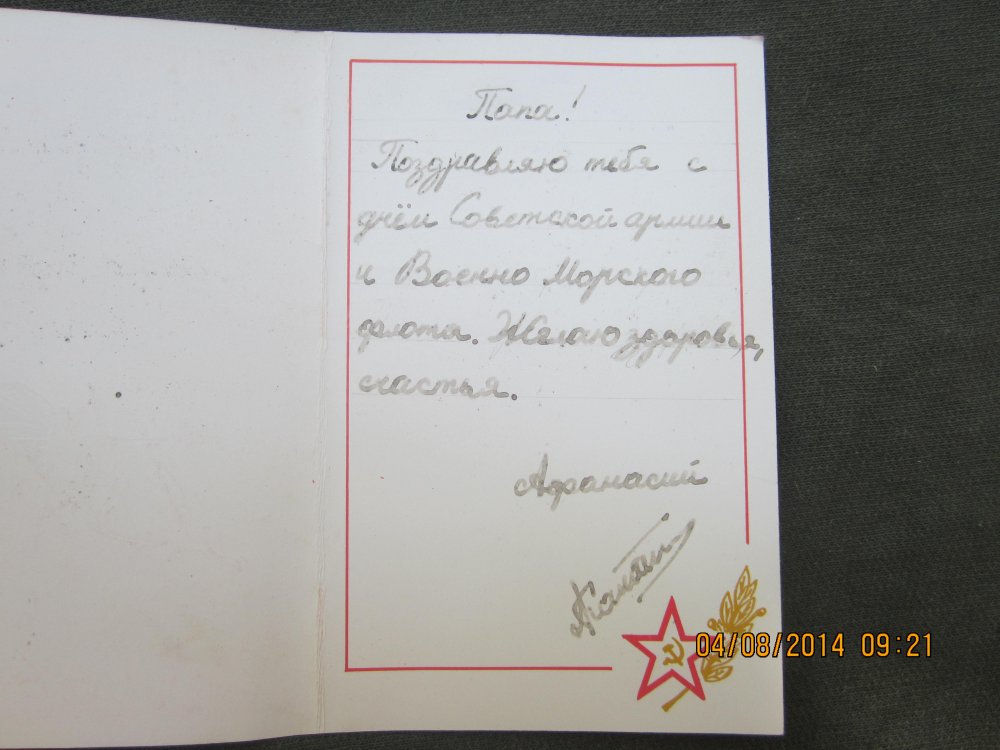 Папа!
Поздравляю тебя с
днём Советской армии
и Военно Морского
флота. Желаю здоровья,
счастья.
Афанасий
04/08/2014 09:21